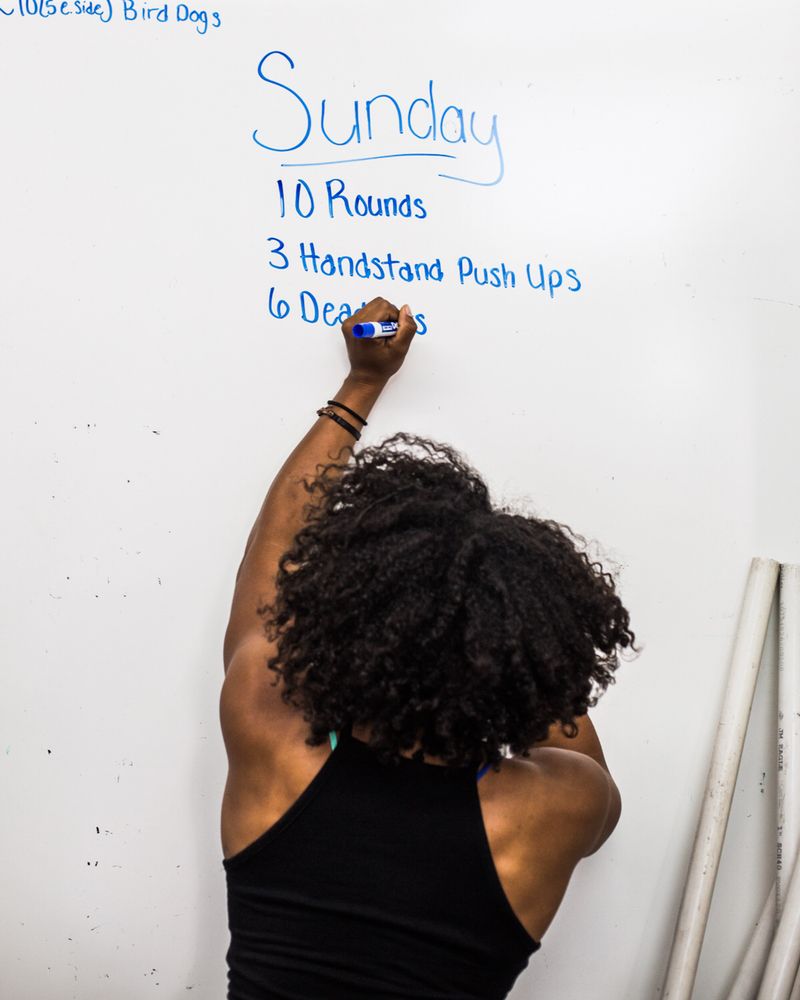 10(5 e.side) Bird Dogs
Sunday
10 Rounds
3 Handstand Push Ups
6
JM EAGLE